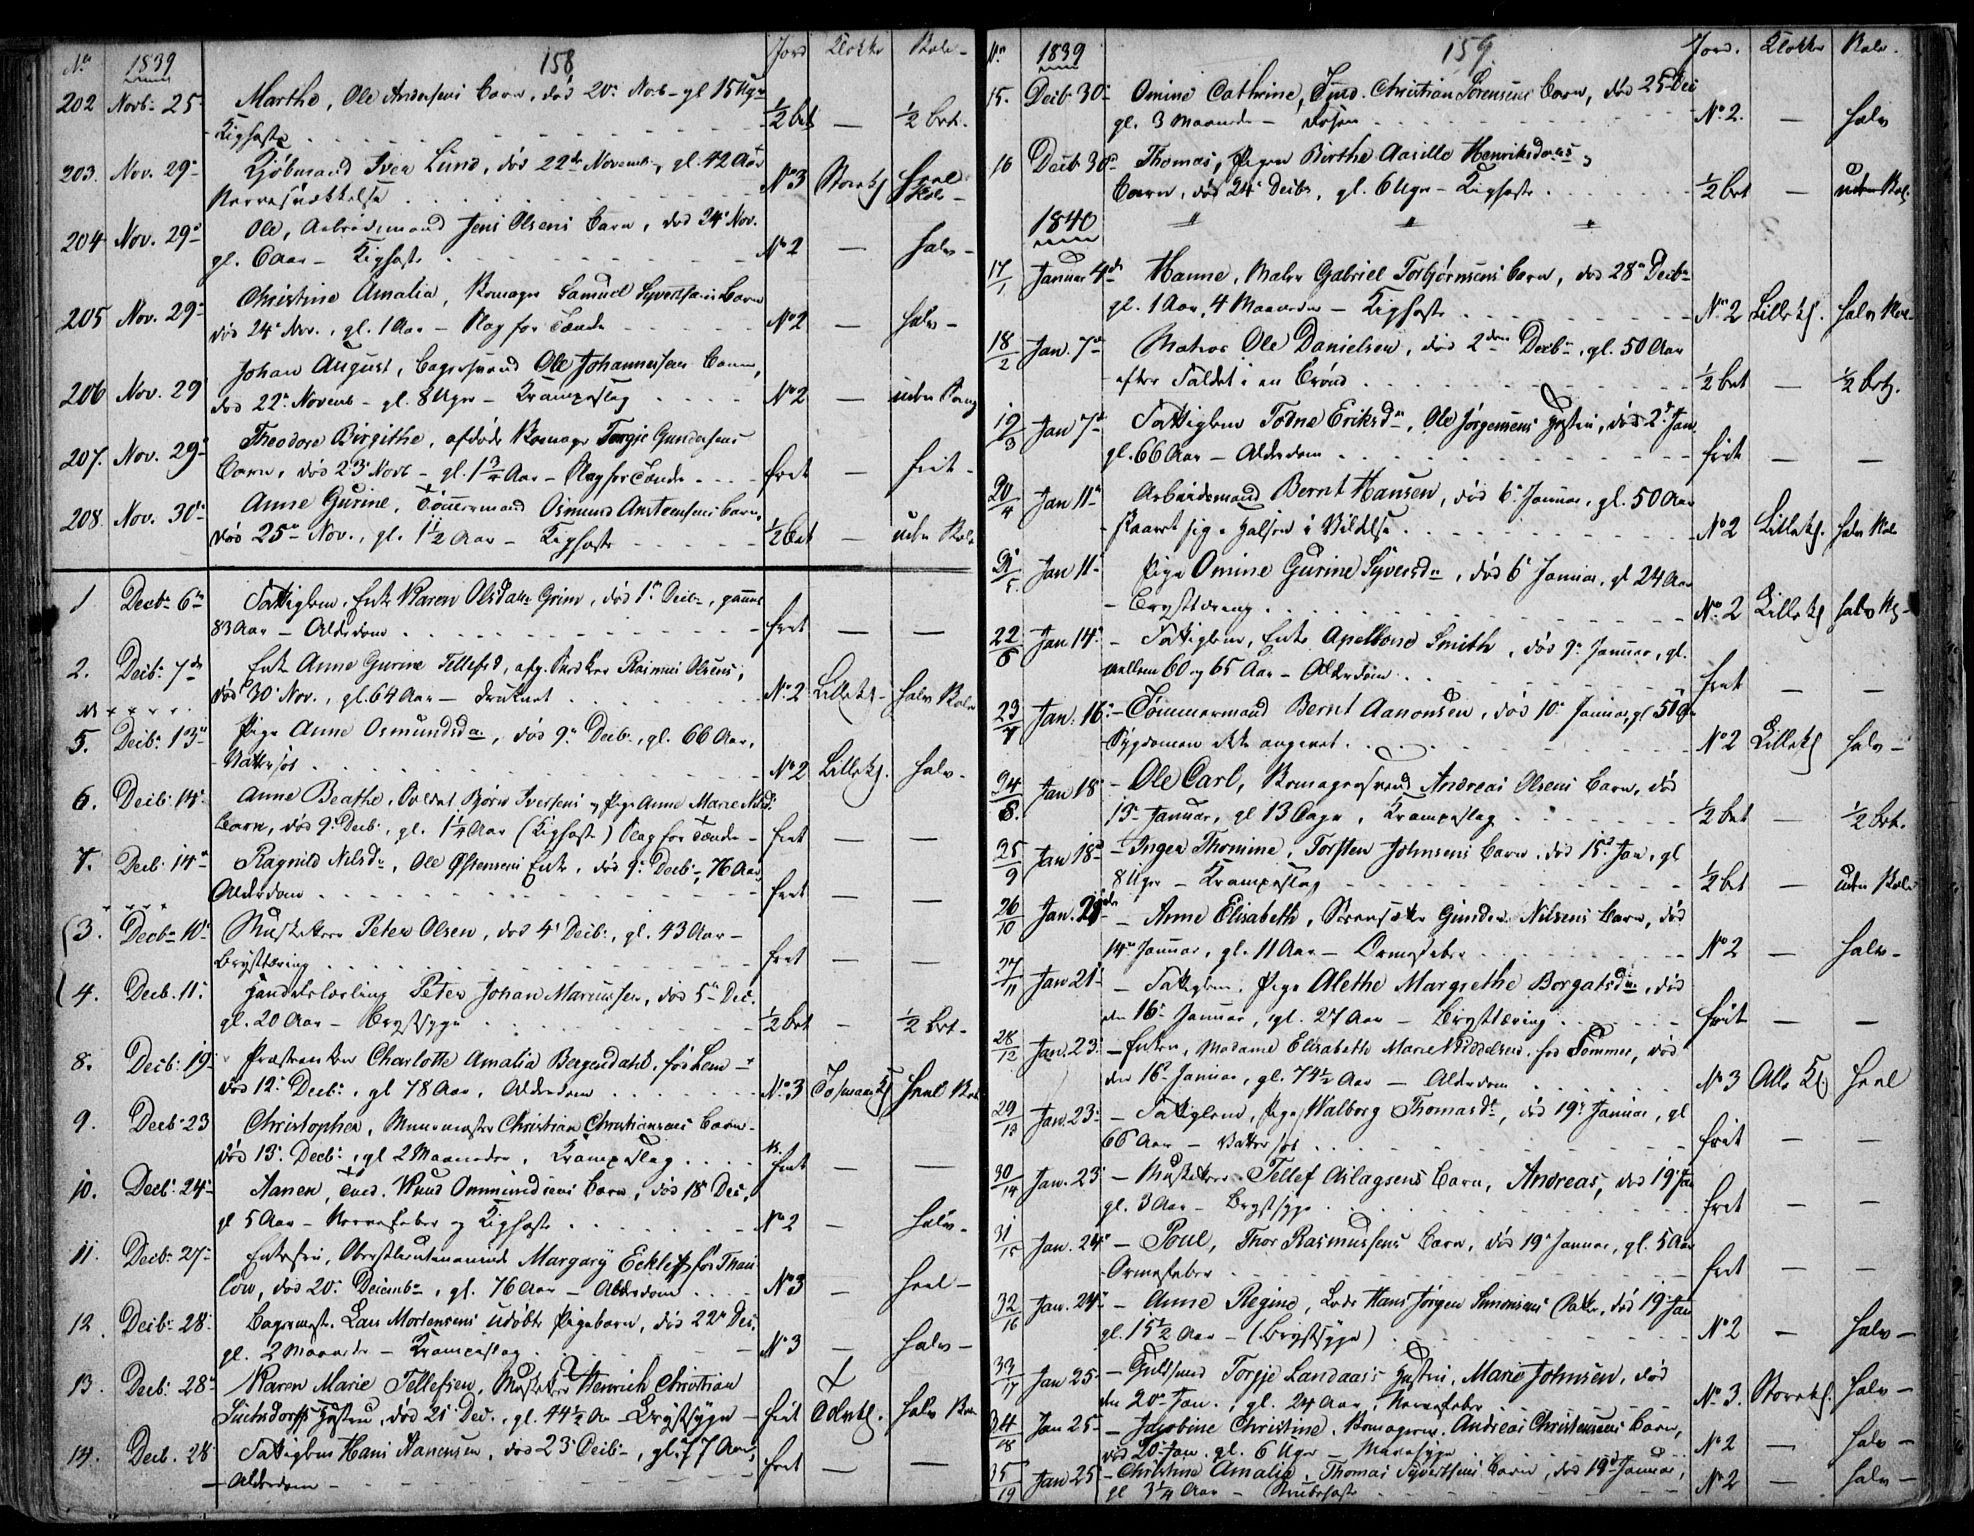 No 1839 158 Jord Klokke Bale-
202 Novb. 25. Marthe, Ole Andersens Barn, død 20. Novb. gl 15 Uger
Kighoste ½ bet — ½ bet.
203. Nov. 29. Kjøbmand Iver Lund, død 22de Novemb., gl. 42 Aar
Nervesvækkelse No 3 Storekl Heel
204 Nov. 29. Ole, Arbeidsmand Jens Olsens Barn, død 24. Nov.
gl. 6 Aar — Kighoste No 2 — halv-
205 Nov. 29. Christine Amalia, Samuel Syvertsens Barn
død 24. Nov., gl. 1 Aar — Slag for Tænder No 2 — halv-
206 Nov. 29 Johan August, Bagersvend Ole Johannesen Barn,
død 22. Novemb- gl. 8 Uger — Krampeslag No 2 — uden
207. Nov. 29. Theodore Birgithe, afdøde Torgje Gundersens
Barn, død 23. Novb- gl. 1¾ Aar — Slag for Tænder frit — frit-
208. Nov. 30. Anne Gurine, Tømmermand Osmund Anstensens Barn,
død 25. Nov., gl. 1½ Aar — Kighoste ½ bet — uden Bale
1 Decbr 6. Fattiglem, Enke Karen Olsdatr Grim, død 1. Decbr, gammel
83 Aar — Alderdom frit — —
2. Decb. 7de Enke Anne Gurine Tellefsd, afg. Rasmus Olsens,
død 30. Nov., gl. 64 Aar — druknet No 2 Lillekl- halv Bale
5. Decb. 13. Pige Anne Osmundsdatr, død 9. Decb., gl. 66 Aar,
Vattersot No 2 Lillekl. halv-
6. Decb. 14. Anne Beathe, Soldat Bjørn Iversens og Pige Anne Marie Nilsd.
Barn, død 9. Decb., gl. 1¼ Aar (Kighoste) Slag for Tænder frit — —
7. Decb. 14. Ragnild Nilsd., Ole Østensens Enke, død 9. Decb-, 76 Aar
Alderdom frit — —
3. Decbr 10. Musketeer Peter Olsen, død 4. Decb., gl. 43 Aar —
Brysttæring frit — —
4. Decb. 11. Handelslærling Peter Johan Marcussen, død 5. Dec.
gl. 20 Aar — Brystsyge ½ bet — ½ bet-
8. Decb. 19. Charlotte Amalia Bergendahl, født Lem —
død 12. Decb., gl 78 Aar, Alderdom No. 3 Heel Bale
9. Decb. 23 Christopher, Christian Christiansens Barn-
død 13. Decb., gl 2 Maaneder, Krampeslag frit — —
10. Decb. 24. Aanen, Knud Ommundsens Barn, død 18. Dec,
gl 5 Aar — Nervefeber og Kighoste No 2 — halv-
11. Decb. 27. Margary Eckleff født Thau
low, død 20. Decembr, gl. 76 Aar — Alderdom No 3 — heel-
12. Decb. 28. Bagermest. Lars Mortensens udøbte Pigebarn, død 22. Dec.
gl. 2 Maaneder — Krampeslag No 3 — halv-
13. Decb. 28. Karen Marie Tellefsen, Musketeer Henrich Christian
Hustru, død 21. Dec., gl. 44½ Aar — Brystsyge — frit halv Bale
14. Decb. 28 Fattiglem Hans Aanensen, død 23. Decb., gl: 77 Aar,
— Alderdom frit — —
No. 1839 159. Jord. Klokke Bale-
15. Decb 30. Omine Cathrine, Christian Sørensens Barn, død 25. Dec
gl. 3 Maaneder — No 2. — halv
16 Decb 30. Thomas, Pigen Birthe Aasille Henriksdatrs
Barn, død 24. Decbr, gl. 6 Uger — Kighoste ½ bet — uden Bale
1840 " " "
17/1 Januar 4de Hanne, Maler Gabriel Torbjørnsens Barn, død 28. Decb.
gl. 1 Aar, 4 Maaneder — Kighoste No 2 Lillekl. halv Bale
18/2 Jan. 7. Matros Ole Danielsen, død 2den Decbr, gl. 50 Aar
efter Faldet i en Brønd ½ bet — ½ bet.
19/3 Jan 7. Fattiglem Todne Eriksdr, Ole Jørgensens Hustru, død 2. Jan
gl. 66 Aar — Alderdom frit — —
20/4 Jan 11. Arbeidsmand Bernt Hansen, død 6. Januar, gl. 50 Aar
skaaret sig i Halsen i Vildelse No 2 Lillekl. halv Bale
21/5. Jan 11. Pige Omine Gurine Syversdr, død 6. Januar, gl 24 Aar
— Brysttæring No 2 Lillekl halv Bl-
22/6 Jan 14. — Fattiglem, Enke Apellone Smith, død 9. Januar, gl.
mellem 60 og 65 Aar — Alderdom frit — —
23/7 Jan. 16. — Tømmermand Bernt Aanonsen, død 10. Januar, gl 51
Sygdommen ikke angivet No 2 Lillekl halv —
24/8. Jan 18. — Ole Carl, Andreas Olsens Barn, død
13. Januar, gl 13 Dage, Krampeslag ½ bet — ½ bet.
25/9 Jan 18. — Inger Thomine, Torsten Johnsens Barn, død 15. Jan, gl
8 Uger — Krampeslag ½ bet — uden Bale
26/10 Jan. 21. — Anne Elisabeth, Gunder Nilsens Barn, død
14. Januar, gl. 11 Aar — Ormefeber No 2 — halv-
27/11 Jan 21. — Fattiglem, Pige Alethe Margrethe Borgatsdr, død
den 16. Januar, gl. 27 Aar — Brysttæring frit — —
28/12 Jan. 23. — Enken, Madame Elisabeth Marie født Sommer, død
den 16. Januar, gl. 74½ Aar — Alderdom No 3 Alle Kl. Heel
29/13 Jan. 23. — Fattiglem, Pige Walborg Thomasdr, død 19. Januar, gl
66 Aar — Vattersot frit — —
30/14 Jan. 23 — Musketeer Tellef Aslagsens Barn, Andreas, død 19. Jan
gl. 3 Aar — Brystsyge frit — —
31/15 Jan. 24. — Poul, Thor Rasmussens Barn, død 19. Januar, gl. 5 Aar
Ormefeber frit — —
32/16 Jan. 24. — Anne Regine, Lods Hans Jørgen Simonsens Datter, død 19. Jan
gl. 15½ Aar — (Brystsyge) No 2 — halv —
33/17 Jan 25. — Guldsmed Torgje Landaas's Hustru, Marie Johnsen, død
den 20. Jan., gl. 24 Aar, Nervefeber No. 3. Storekl. halv —
34/18 Jan 25- — Jacobine Christine, Andreas Christensens Barn,
død 20. Jan. gl. 6 Uger — Mavesyge No 2 — halv —
35/19 Jan 25 — Christine Amalia, Thomas Syvertsens Barn, død 19. Januar,
gl 3¼ Aar — Strubehoste No 2 — halv —